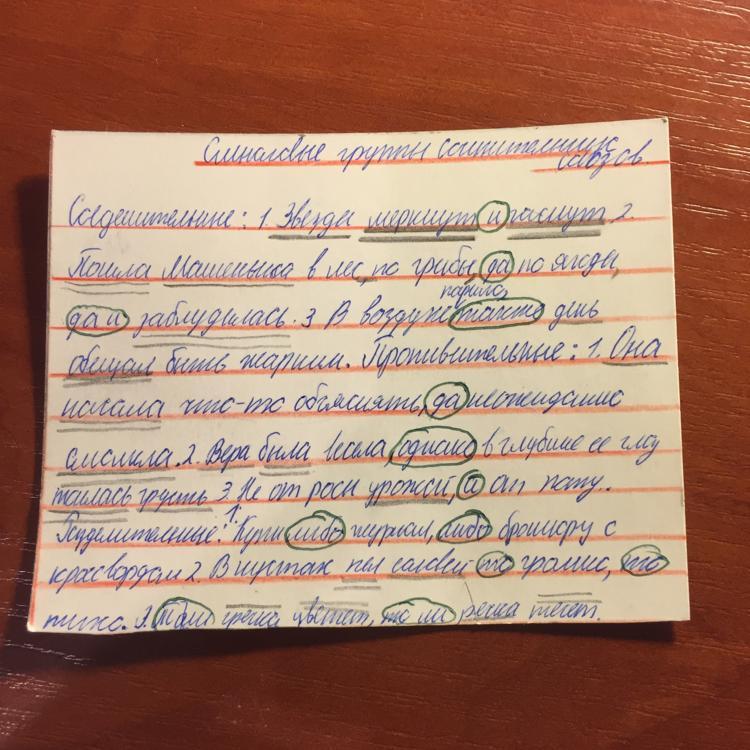 Смысловые группы сочинительных
союзов.
Соединительные: 1. Звезды меркнут и гаснут. 2.
Пошла Машенька в лес, по грибы, да по ягоды,
да и заблудилась. 3 В воздухе парило, также день
обещал быть жарким. Противительные: 1. Она
начала что-то объяснять, да неожиданно
смолкла. 2. Вера была весела, однако в глубине ее глаз
таилась грусть 3. Не от росы урожай, а от поту.
Разделительные: 1. Купи либо журнал, либо брошюру с
кроссвордом 2. В кустах пел соловей то громко, то
тихо. 3. То ли гречка цветет, то ли речка течет.